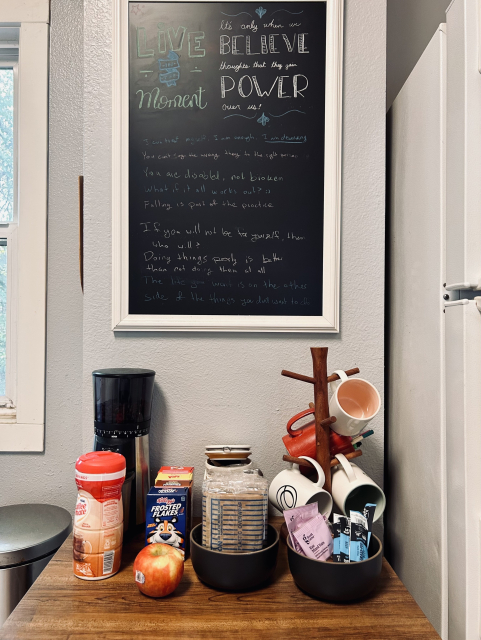 LIVE
in the
Moment
It's only when we
BELIEVE
thoughts that they gain
POWER
over us!
I am enough. I am deserving
You can't say the wrong thing to the right person
You are disabled, not broken
What if it all works out?
Falling is part of the practice
If you will not be for yourself, then
who will?
Doing things poorly is better
than not doing them at all
The life you want is on the other
side of the things you don't want to do
Kellogg's
FROSTED
FLAKES